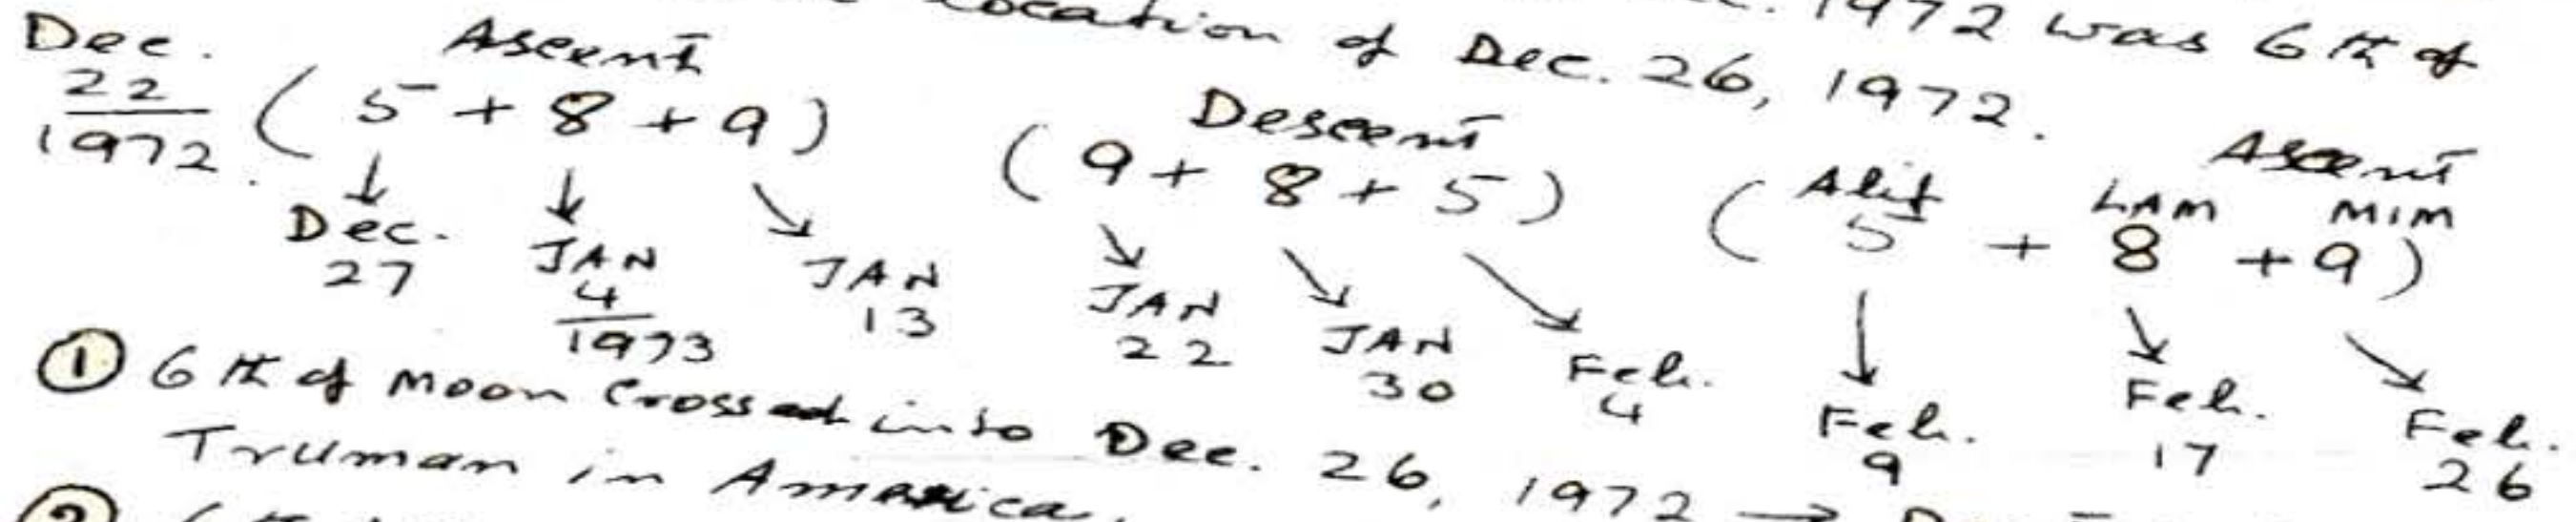 location of Dec. 26, 1972.
1972 was 6th of
Dec. 22/1972. Ascent (5 + 8 + 9) Descent (9 + 8 + 5) Ascent (Alif 5 + LAM 8 + MIM 9)
Dec. 27 JAN 4/1973 JAN 13 JAN 22 JAN 30 Feb. 4 Feb. 9 Feb. 17 Feb. 26
① 6th of Moon Crossed into Dec. 26, 1972 →
Truman in America.
②